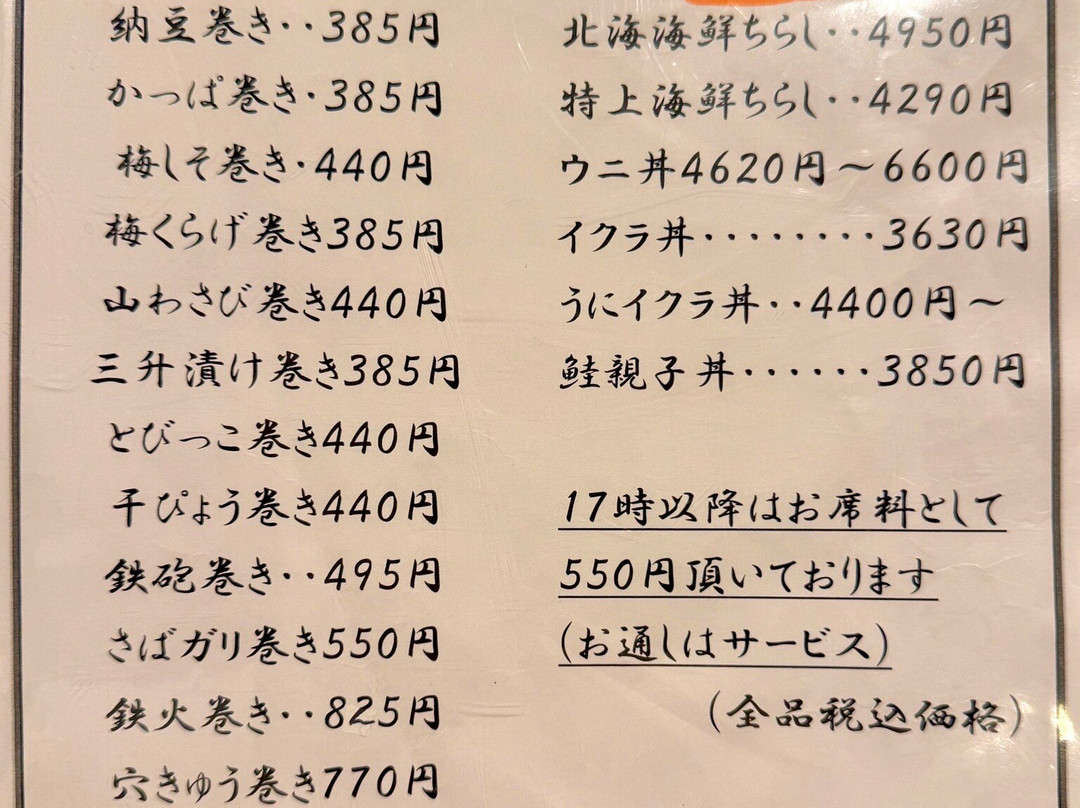 納豆巻き‥385円
かっぱ巻き・385円
梅しそ巻き・440円
梅くらげ巻き385円
山わさび巻き440円
三升漬け巻き385円
とびっこ巻き440円
干ぴょう巻き440円
鉄砲巻き‥495円
さばガリ巻き550円
鉄火巻き‥825円
穴きゅう巻き770円
北海海鮮ちらし‥4950円
特上海鮮ちらし‥4290円
ウニ丼4620円～6600円
イクラ丼・・・・・・・・3630円
うにイクラ丼‥4400円～
鮭親子丼・・・・・・3850円
17時以降はお席料として
550円頂いております
(お通しはサービス)
(全品税込価格)